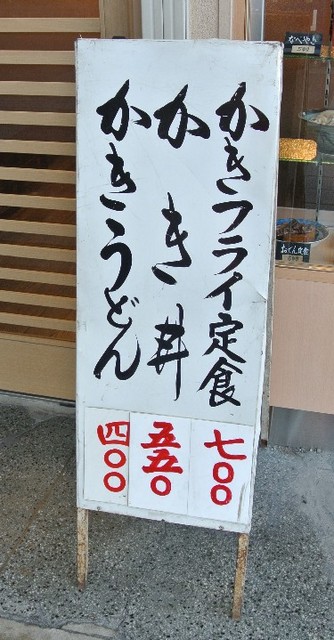 かきフライ定食
七〇〇
かき丼
五五〇
かきうどん
四〇〇
なべやき